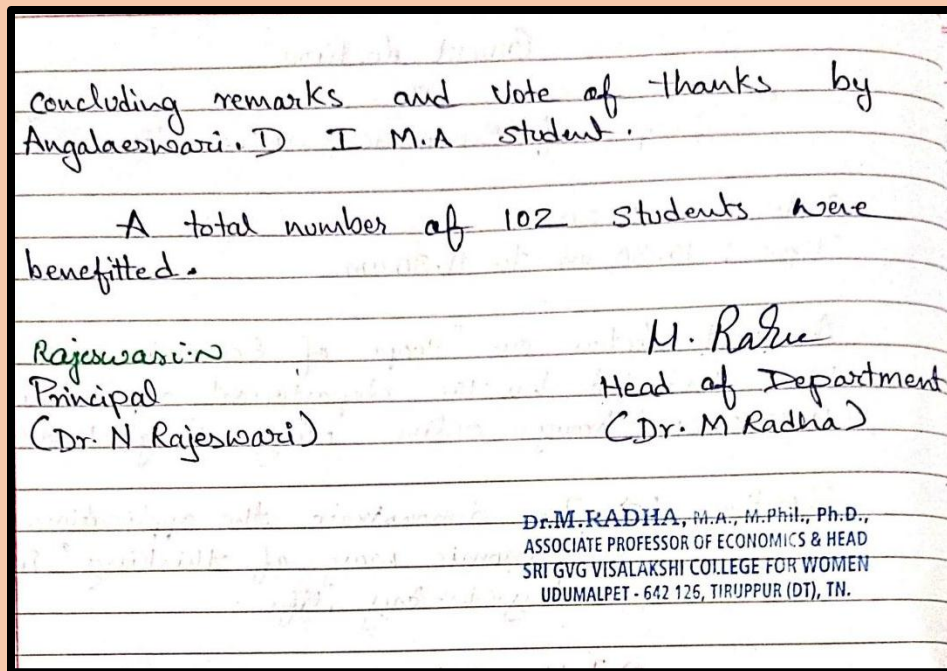 concluding remarks and Vote of thanks by
Angalaeswari. D I M.A student.
A total number of 102 students were
benefitted.
Rajeswari.N
M. Radha
Principal
Head of Department
(Dr. N Rajeswari)
(Dr. M Radha)
Dr.M.RADHA, M.A., M.Phil., Ph.D.,
ASSOCIATE PROFESSOR OF ECONOMICS & HEAD
SRI GVG VISALAKSHI COLLEGE FOR WOMEN
UDUMALPET - 642 126, TIRUPPUR (DT), TN.